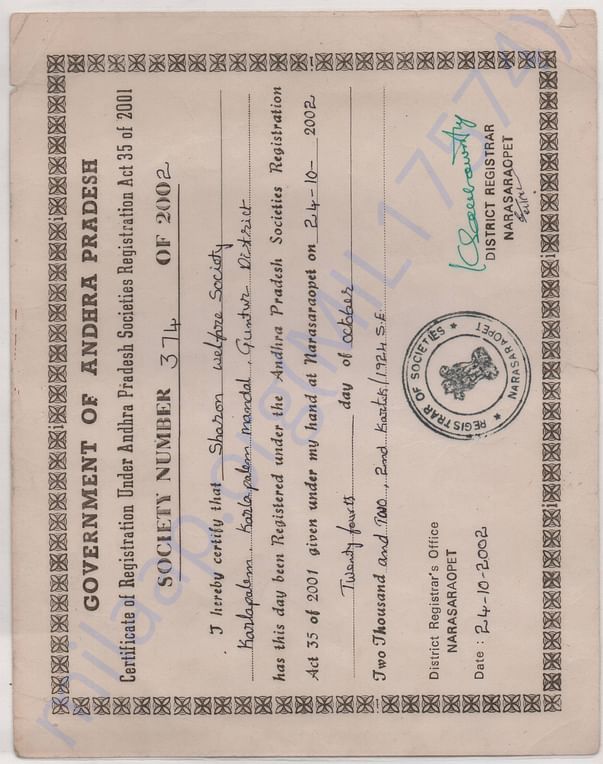 GOVERNMENT OF ANDHRA PRADESH
Certificate of Registration Under Andhra Pradesh Societies Registration Act 35 of 2001
SOCIETY NUMBER 374 OF 2002
I hereby certify that Sharon Welfare Society
Karlapalem, Karlapalem mandal, Guntur District
has this day been Registered under the Andhra Pradesh Societies Registration
Act 35 of 2001 given under my hand at Narasaraopet on 24-10- 2002
Twenty fourth day of october
Two Thousand and Two, 2nd Kartik/1924 S.E.
District Registrar's Office
NARASARAOPET
Date : 24-10-2002
REGISTRAR OF SOCIETIES
NARASARAOPET
DISTRICT REGISTRAR
NARASARAOPET
milaap.org(MIL17574)